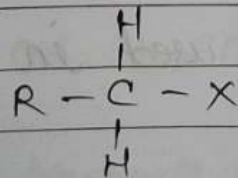 H
R - C - X
H